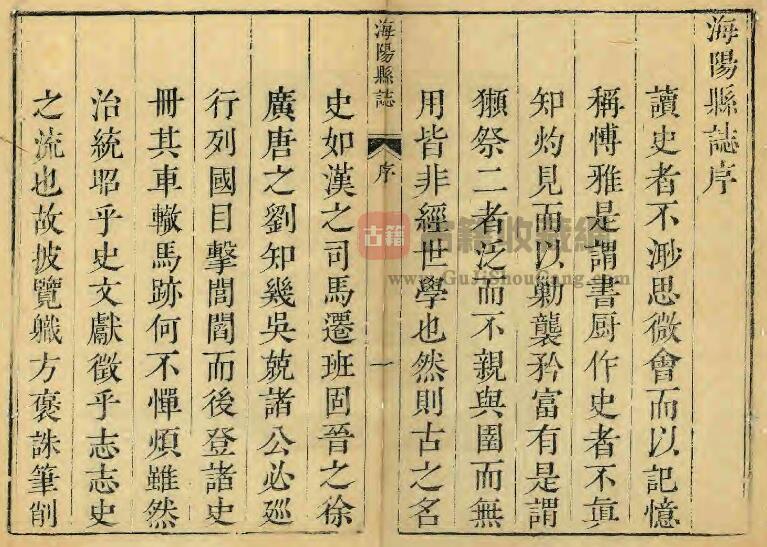 海陽縣誌序
讀史者不渺思微會而以記憶
稱愽雅是謂書厨作史者不眞
知灼見而以勦襲矜富有是謂
獺祭二者泛而不親與圄而無
用皆非經世學也然則古之名
海陽縣誌 序 一
史如漢之司馬遷班固晉之徐
廣唐之劉知幾吳兢諸公必廵
行列國目擊閭閻而後登諸史
冊其車轍馬跡何不憚煩雖然
治統昭乎史文獻徵乎志志史
之流也故披覽軄方褒誅筆削
古籍
古籍收藏網
www.GuJiShouCang.com